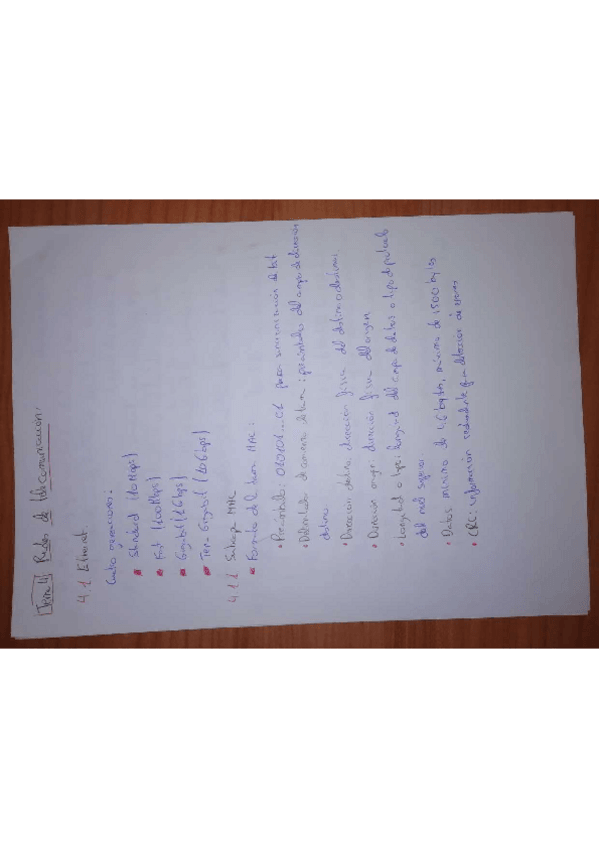 Tema 4: Redes de telecomunicación:
4.1 Ethernet.
Cuatro generaciones:
Standard (10 Mbps)
Fast (100 Mbps)
Gigabit (1 Gbps)
Ten Gigabit (10 Gbps)
4.1.1 Subcapa MAC
Formato de la trama MAC:
• Preámbulo: 010101...01 para sincronización de bit
• Delimitador de comienzo de trama: del campo de dirección
destino
• Dirección destino: dirección física del destino o destinos.
• Dirección origen: dirección física del origen
• Longitud o tipo: longitud del campo de datos o tipo de protocolo
del nivel superior
• Datos: mínimo de 46 bytes, máximo de 1500 bytes
• CRC: información redundante para detección de errores